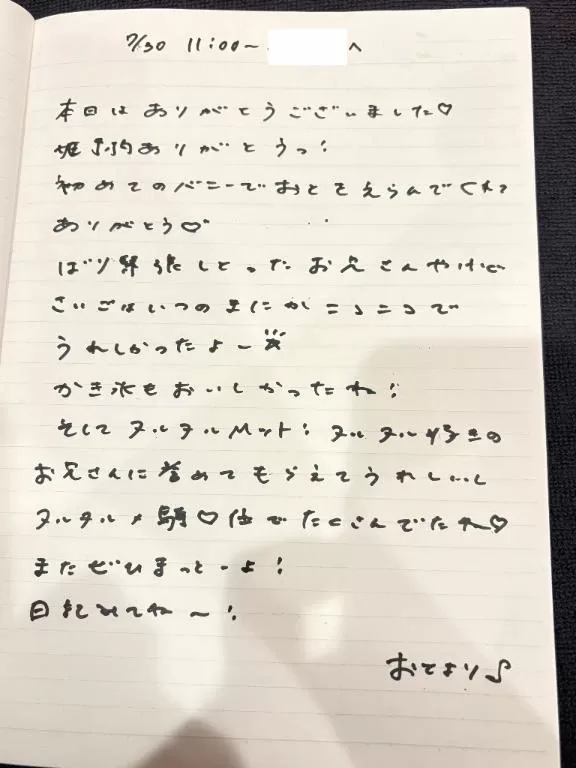 7/30 11:00〜 へ
本日はありがとうございました♡
姫予約ありがとうっ!
初めてのバニーでおとをえらんでくれて
ありがとう♡
ばり緊張しとったお兄さんやけど
さいごはいつのまにかニコニコで
うれしかったよー
かき氷もおいしかったね!
そしてヌルヌルMット!ヌルヌル好きの
お兄さんに誉めてもらえてうれしいし
ヌルヌル×騎♡位でたくさんでたね♡
またぜひまっとーよ!
日記みてね〜!
おとより♪